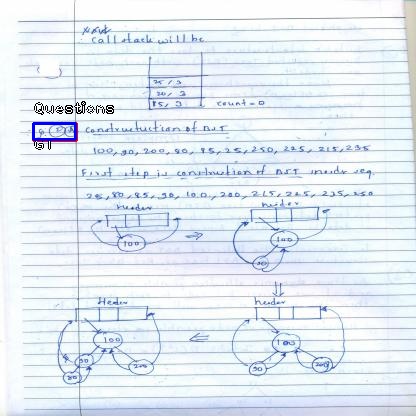 call stack will be
25, 3
20, 3
85, 3
count = 0
Questions
Q.
61
constructuction of BST
100, 90, 200, 80, 85, 25, 250, 225, 215, 235
First step is construction of BST inorder seq.
25, 80, 85, 90, 100, 200, 215, 225, 235, 250
header
100
⇒
header
100
90
⇓
Header
100
90
200
80
⇐
header
100
90
200